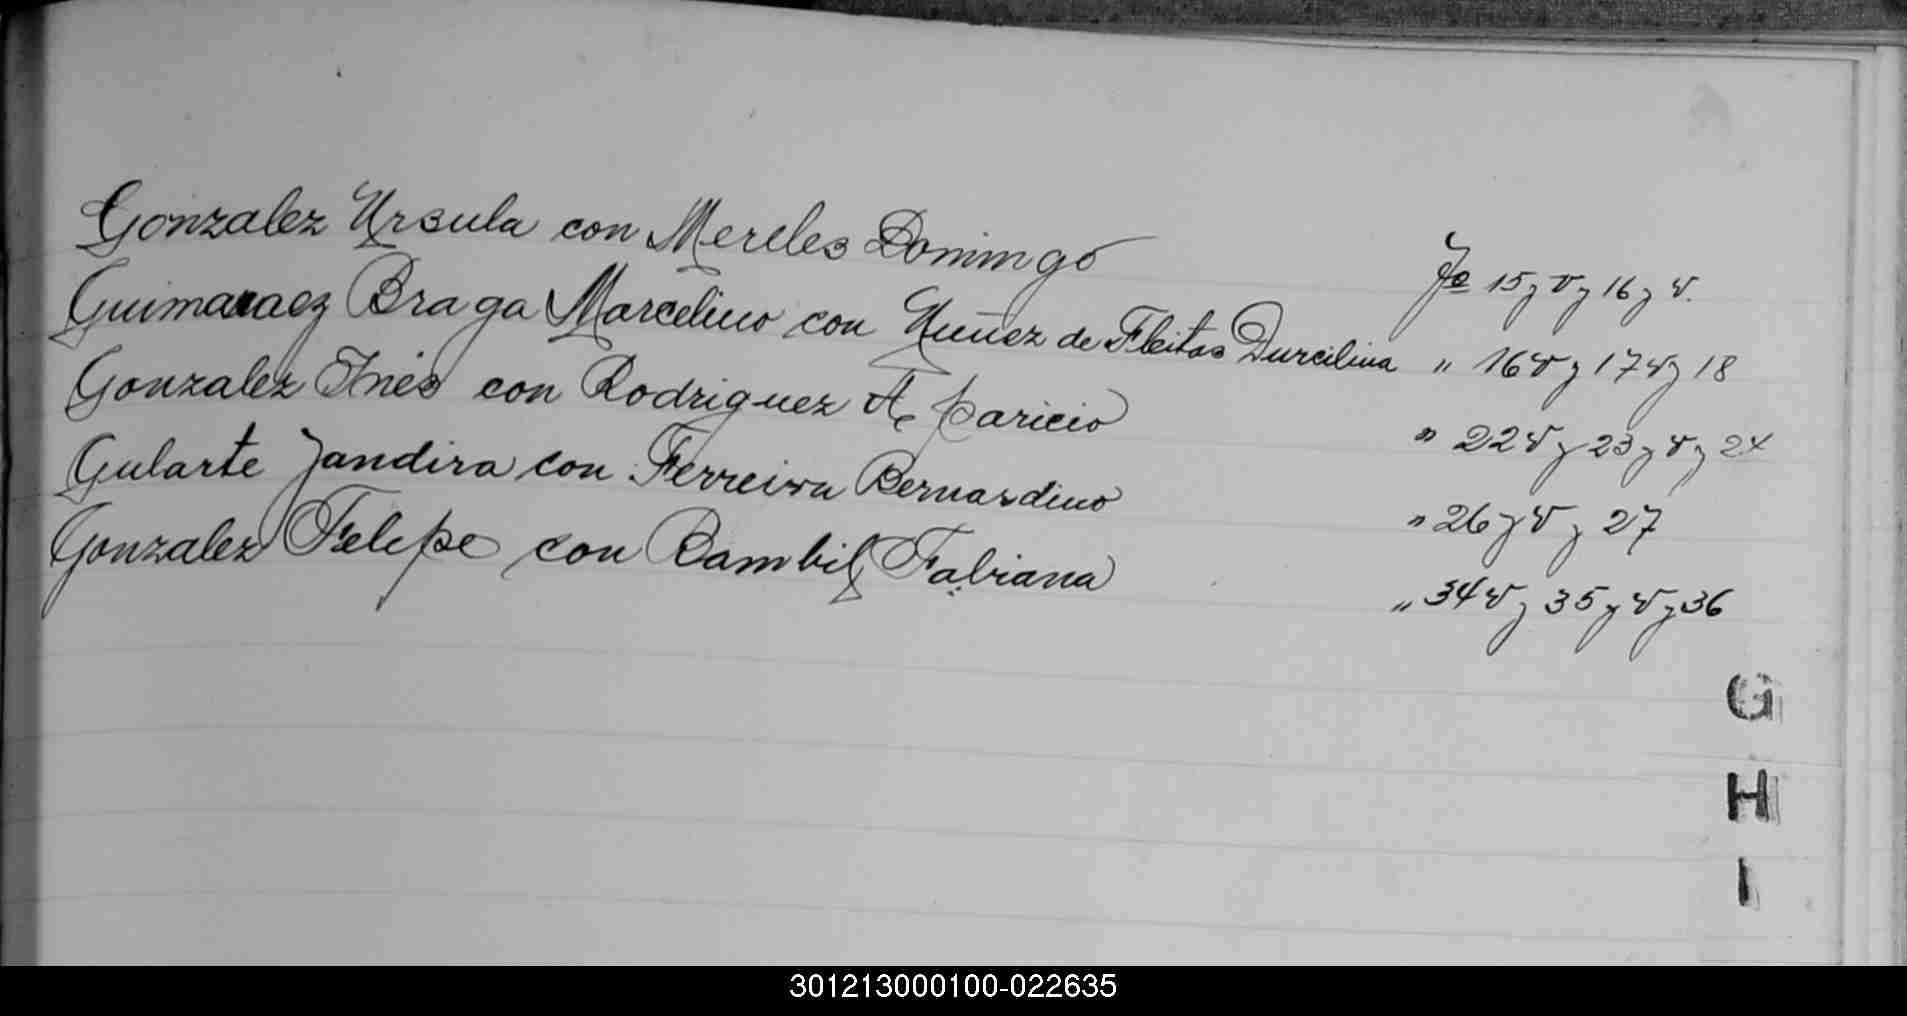 Gonzalez Ursula con Mereles Domingo Fo 15 y v y 16 y v.
Guimaraez Braga Marcelino con Nuñez de Fleitas Durcilina " 16 v y 17 v y 18
Gonzalez Inés con Rodriguez Aparicio " 22 v y 23 y v y 24
Gularte Jandira con Ferreira Bernardino " 26 y v y 27
Gonzalez Felipe con Fabiana " 34 v y 35 y v y 36
G
H
I
301213000100-022635